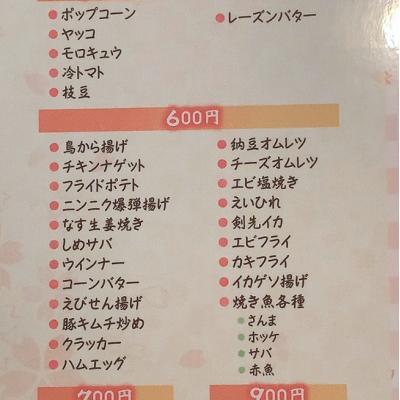 ポップコーン
ヤッコ
モロキュウ
冷トマト
枝豆
レーズンバター
600円
鳥から揚げ
チキンナゲット
フライドポテト
ニンニク爆弾揚げ
なす生姜焼き
しめサバ
ウインナー
コーンバター
えびせん揚げ
豚キムチ炒め
クラッカー
ハムエッグ
納豆オムレツ
チーズオムレツ
エビ塩焼き
えいひれ
剣先イカ
エビフライ
カキフライ
イカゲソ揚げ
焼き魚各種
さんま
ホッケ
サバ
赤魚
700円
900円